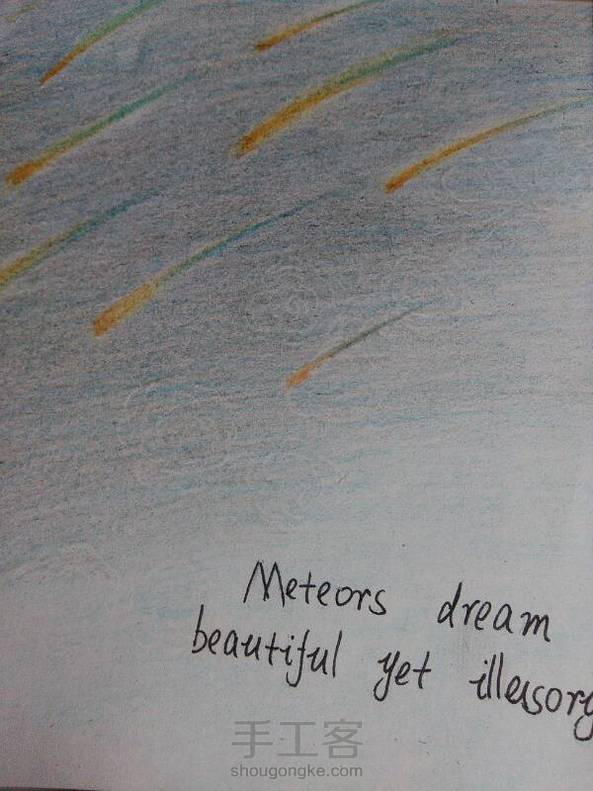 Meteors dream
beautiful yet illusory
手工客
shougongke.com